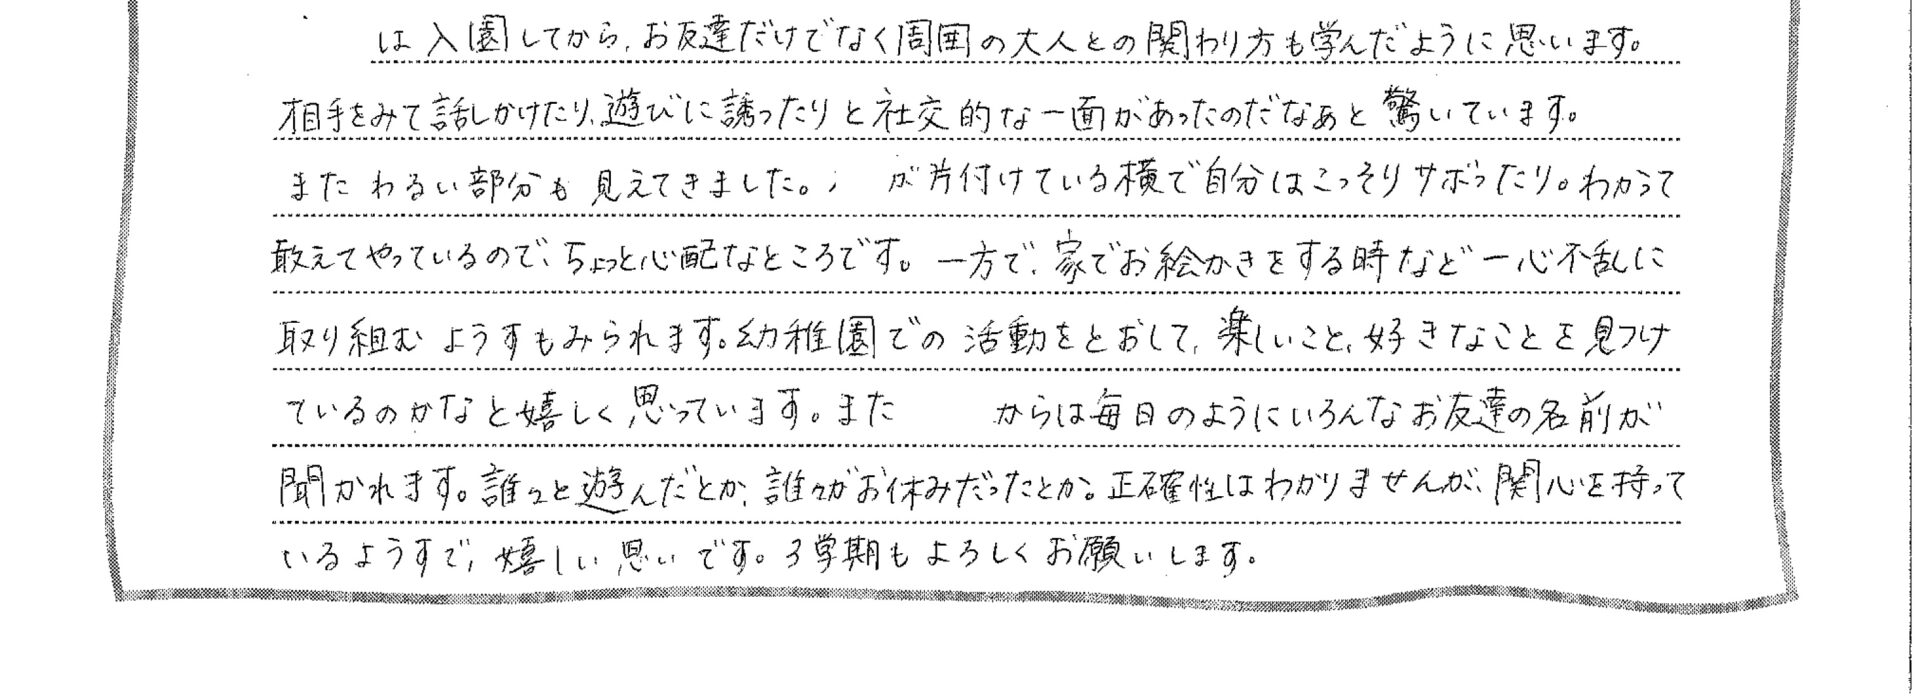 は入園してから、お友達だけでなく周囲の大人との関わり方も学んだように思います。
相手をみて話しかけたり、遊びに誘ったりと社交的な一面があったのだなぁと驚いています。
またわるい部分も見えてきました。 が片付けている横で自分はこっそりサボったり。わかって
敢えてやっているので、ちょっと心配なところです。一方で、家でお絵かきをする時など一心不乱に
取り組むようすもみられます。幼稚園での活動をとおして、楽しいこと、好きなことを見つけ
ているのかなと嬉しく思っています。また からは毎日のようにいろんなお友達の名前が
聞かれます。誰々と遊んだとか、誰々がお休みだったとか。正確性はわかりませんが、関心を持って
いるようすで、嬉しい思いです。3学期もよろしくお願いします。